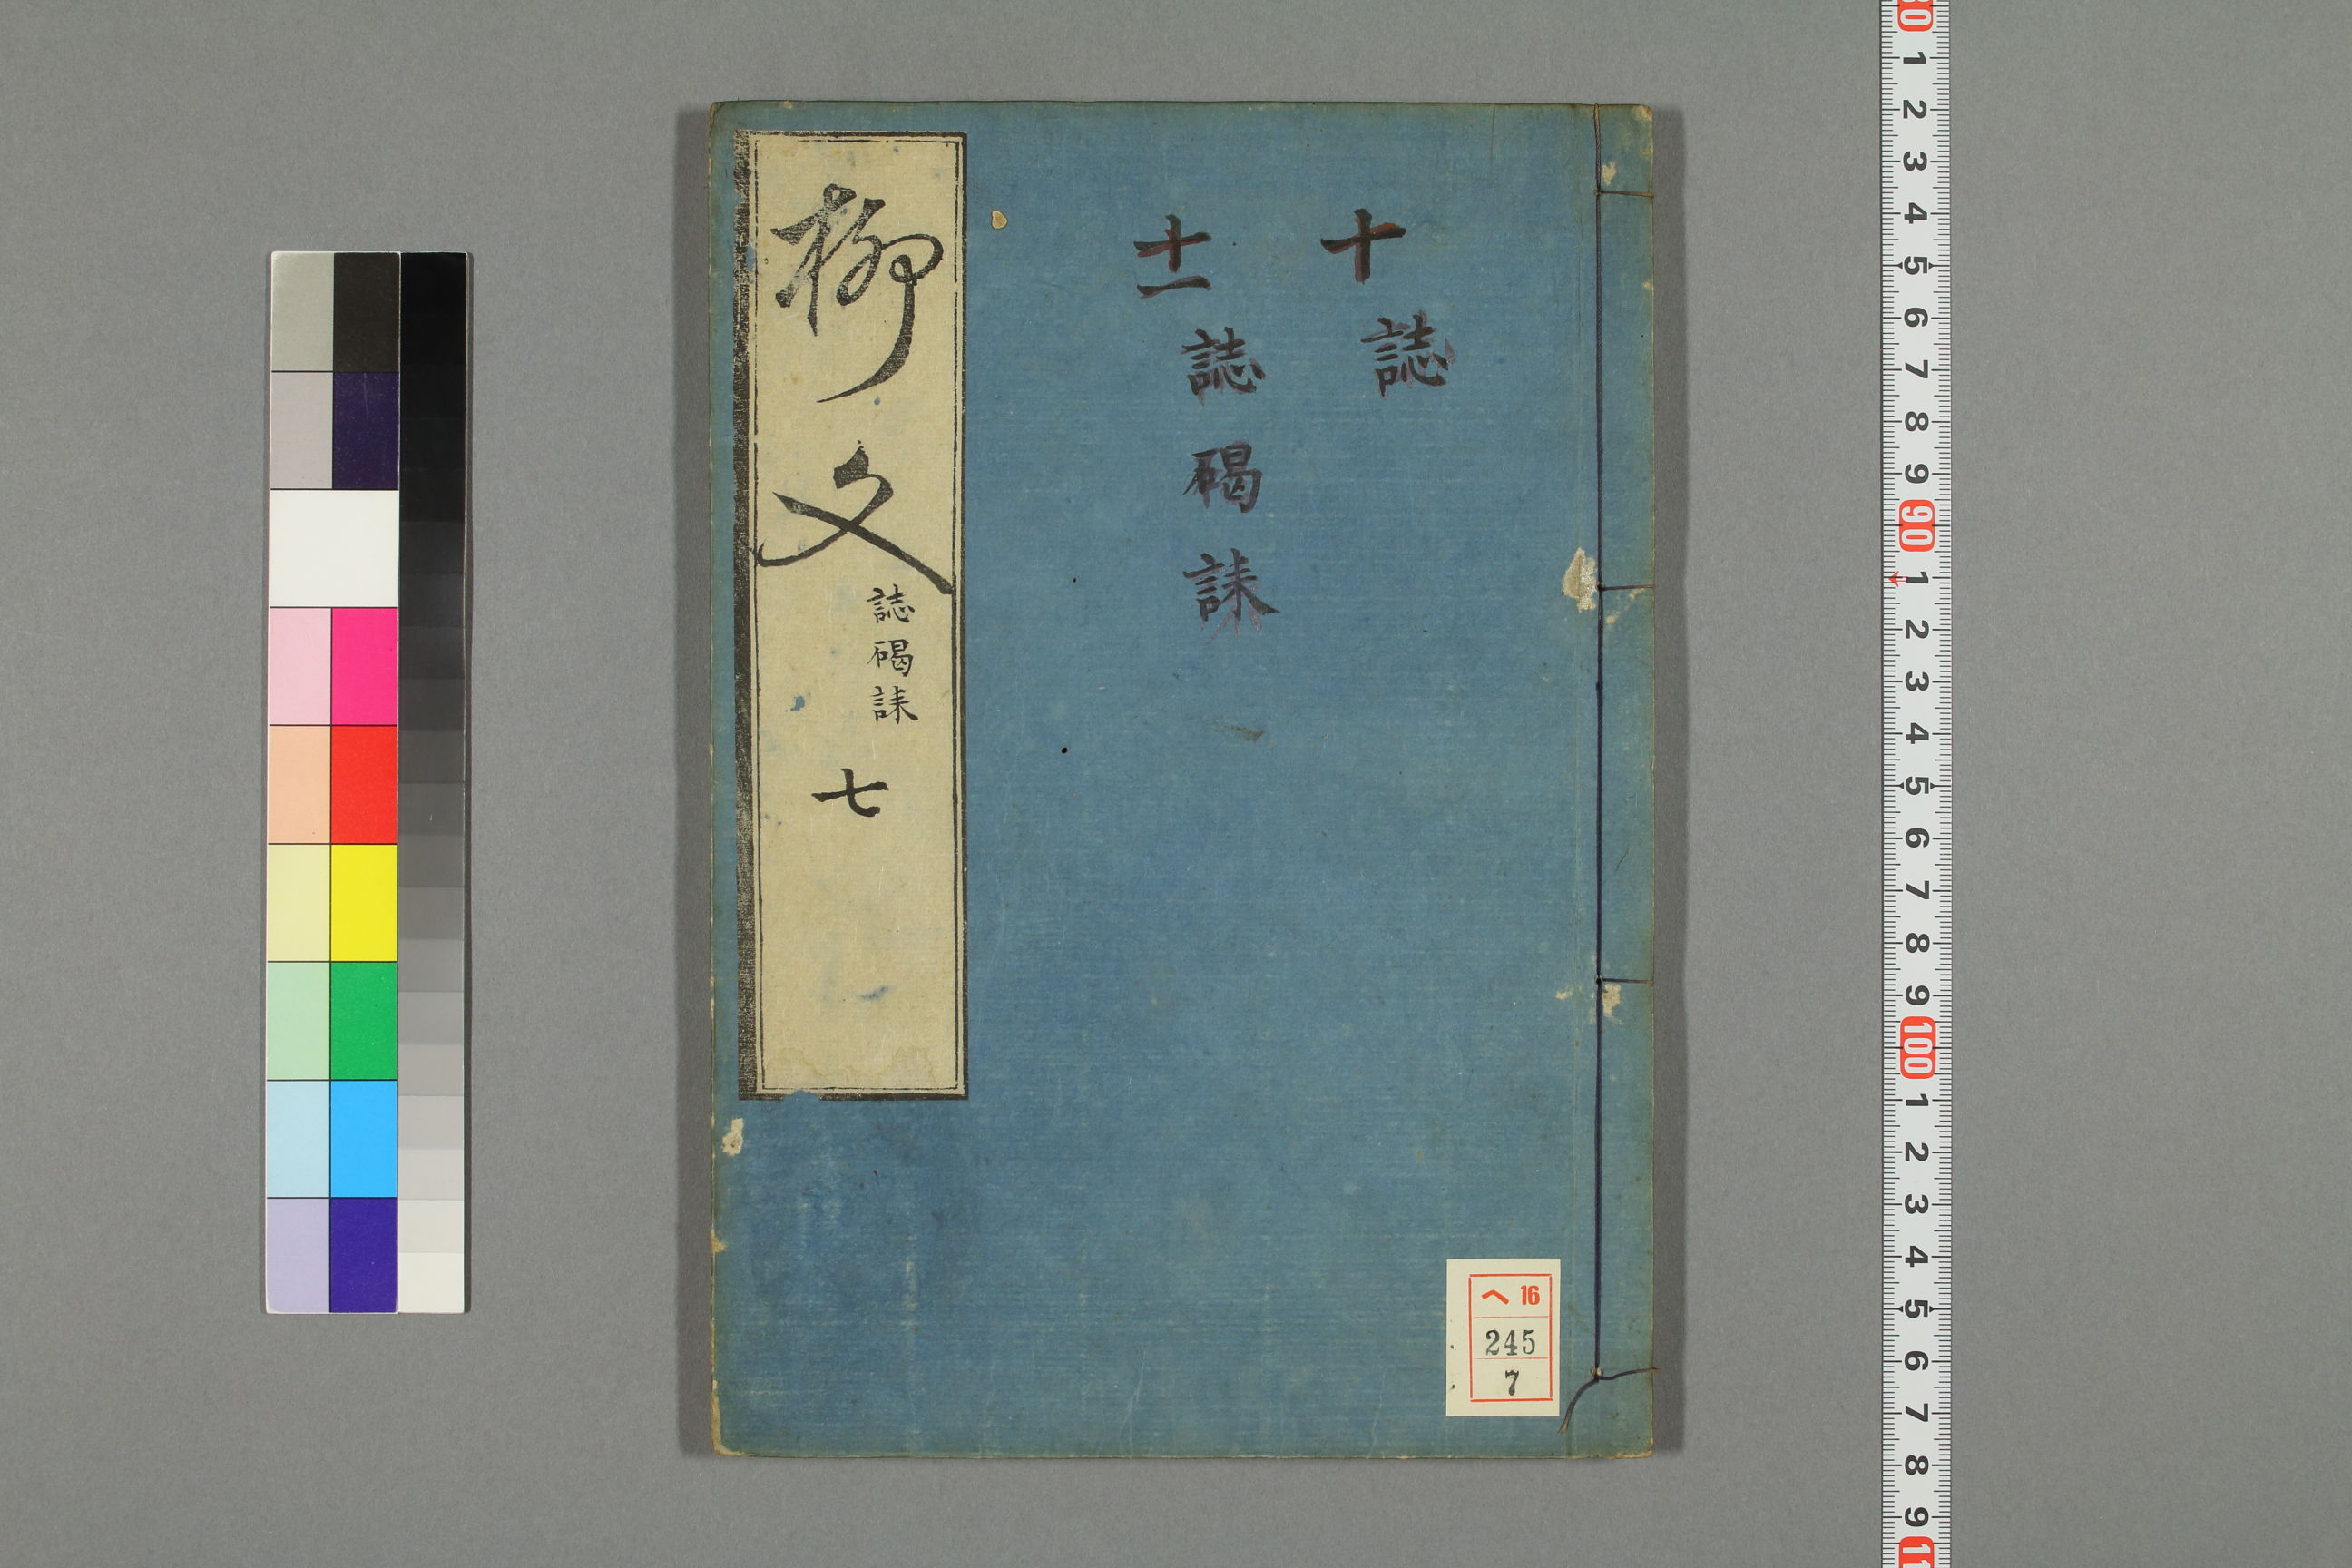 十
誌
十一
誌碣誄
柳文
誌碣誄
七
ヘ 16
245
7
80
1
2
3
4
5
6
7
8
9
90
1
2
3
4
5
6
7
8
9
100
1
2
3
4
5
6
7
8
9